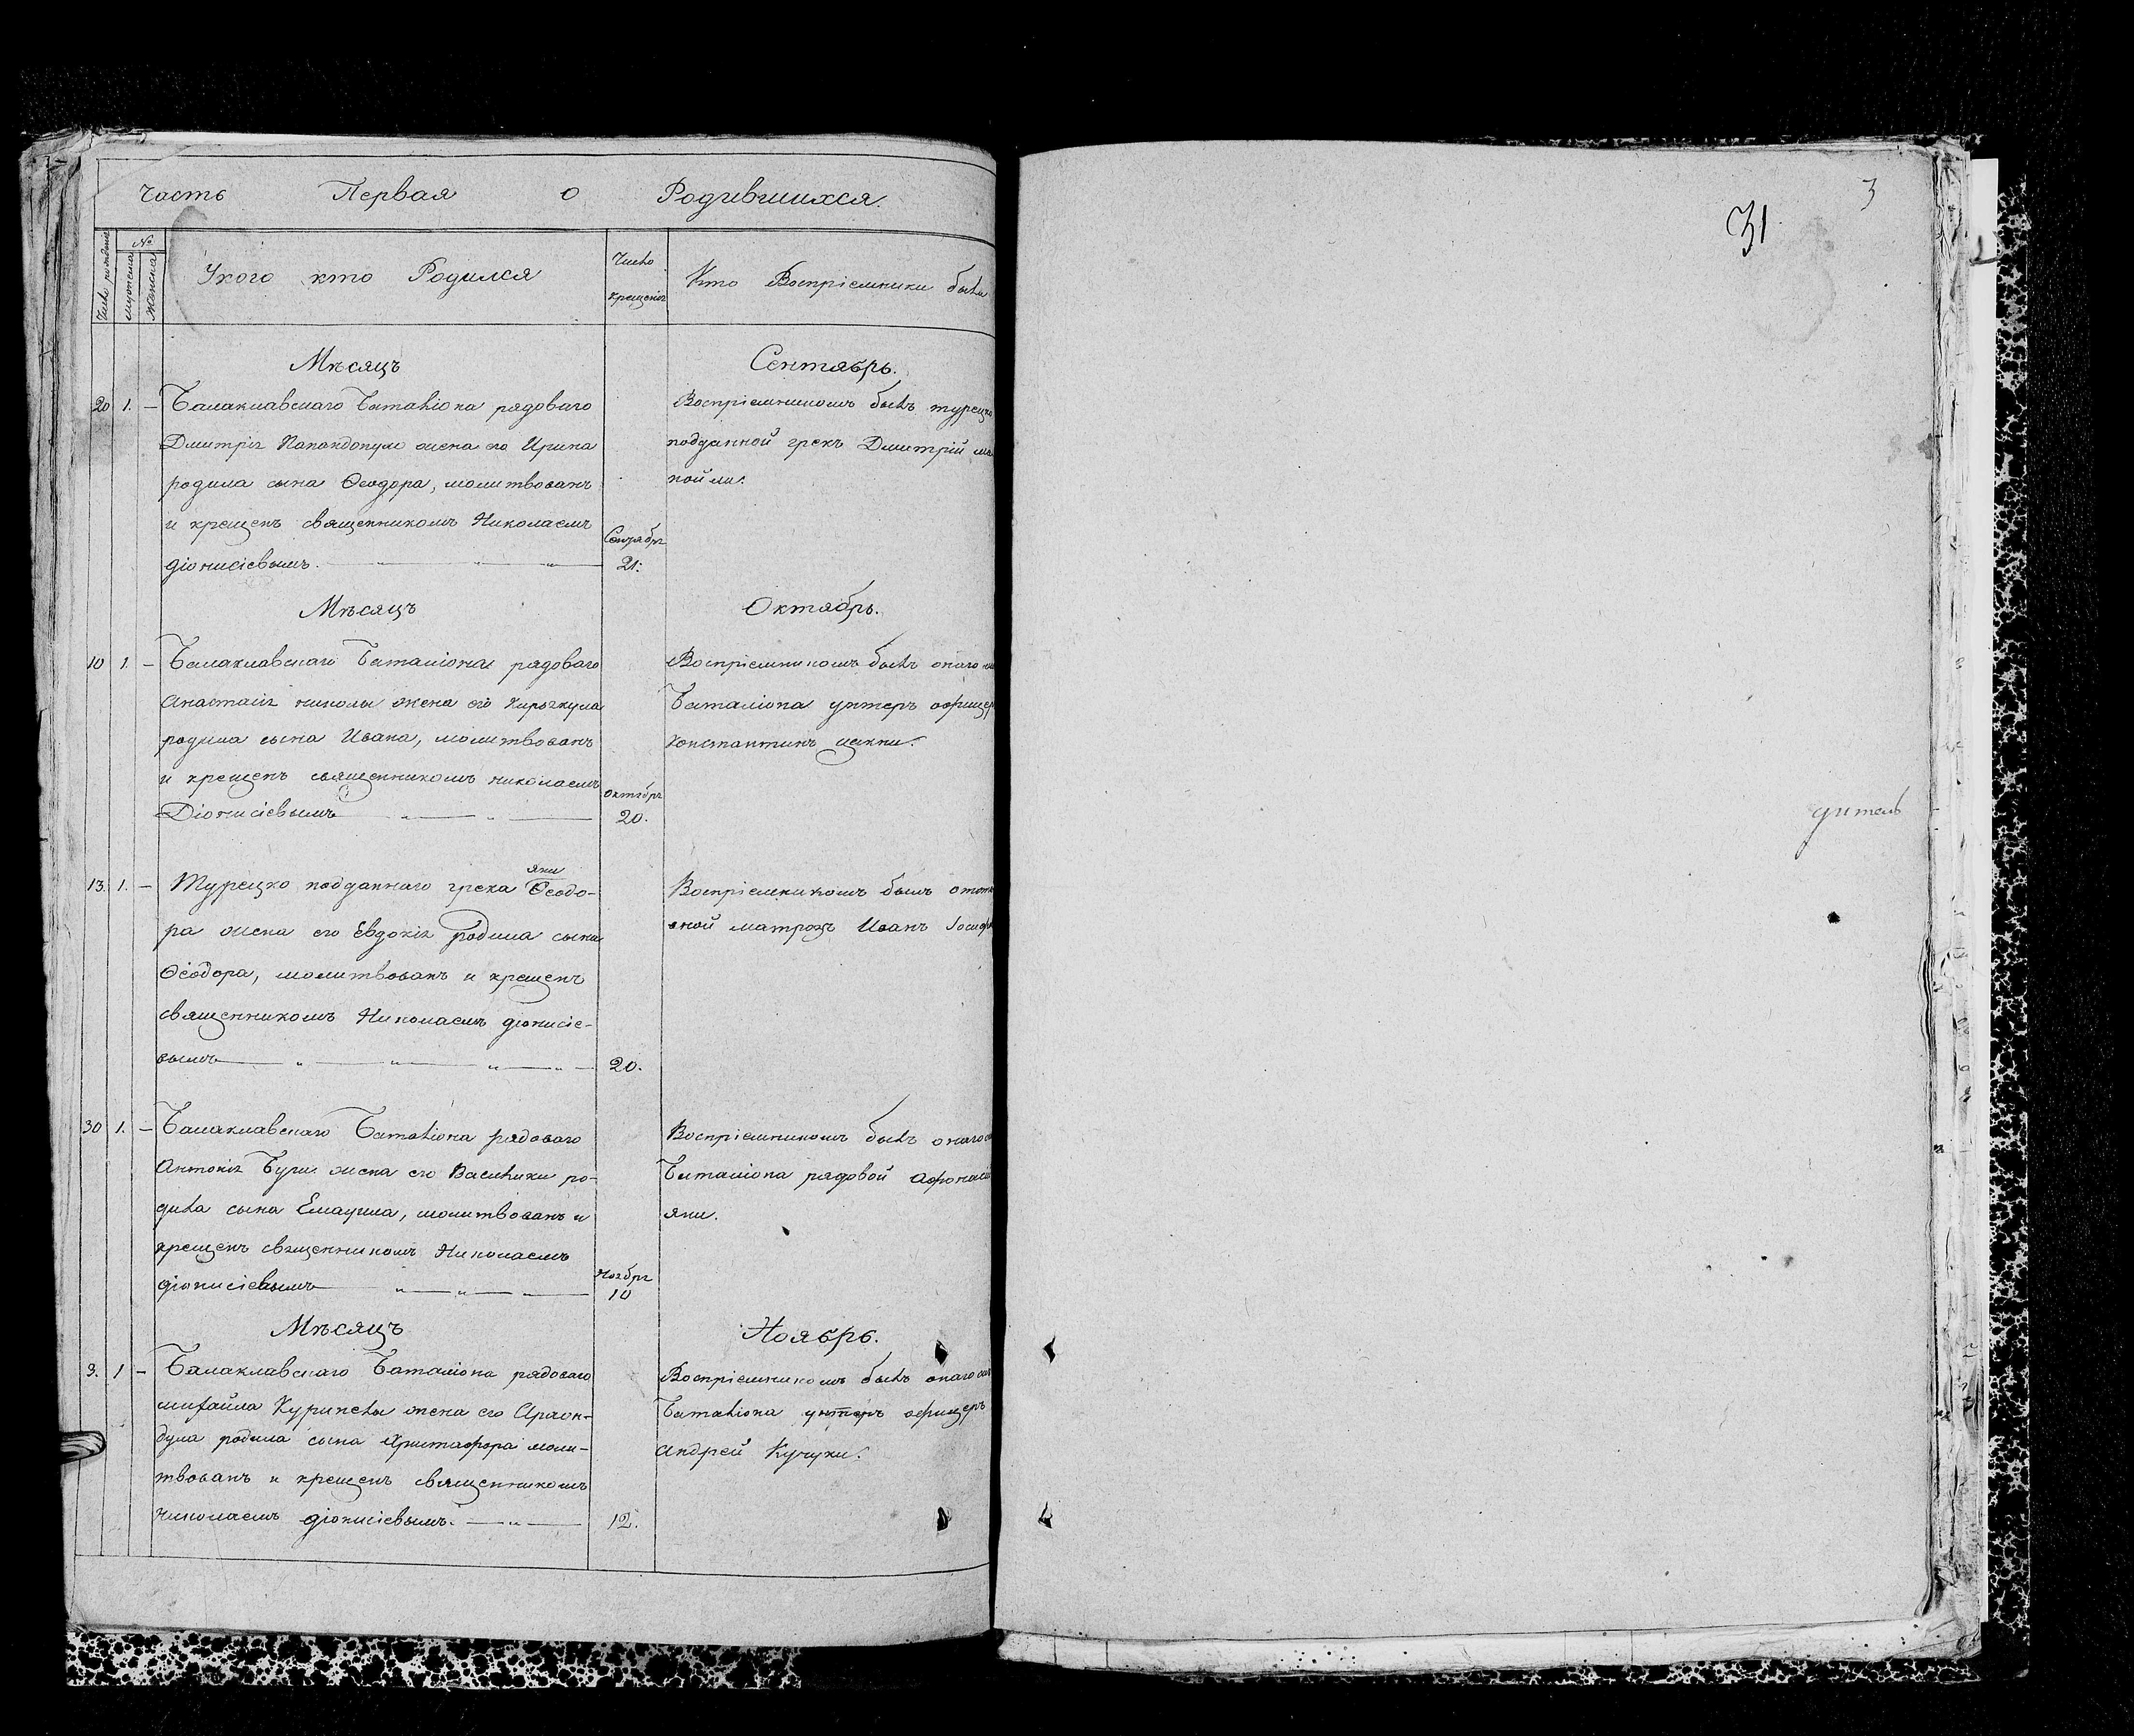 Часть Первая о Родившихся.
Число рождения
№
мужеска
женска
У кого кто Родился
Число крещенія
Кто Воспріемники были
Мѣсяцъ Сентябрь.
20 1. — Балаклавскаго Баталіона рядоваго
Дмитрія Папандопуло жена его Ирина
родила сына Ѳеодора, молитвованъ
и крещенъ священникомъ Николаемъ
Діонисіевымъ.
Сентября
21.
Воспріемникомъ былъ турецко
подданной грекъ Дмитрій
Мѣсяцъ Октябрь.
10 1. — Балаклавскаго Баталіона рядоваго
Анастасія николы жена его Кирьякула
родила сына Ивана, молитвованъ
и крещенъ священникомъ николаемъ
Діонисіевымъ
октября
20.
Воспріемникомъ былъ онаго
Баталіона унтеръ офицеръ
Константинъ цакни.
13. 1. — Турецко подданнаго грека яни Ѳеодо-
ра жена его Евдокія родила сына
Ѳеодора, молитвованъ и крещенъ
священникомъ Николаемъ діонисіе-
вымъ
20.
Воспріемникомъ былъ
матрозъ Иванъ
30 1. — Балаклавскаго Баталіона рядоваго
Антонія Бури жена его Василики ро-
дила сына Емауила, молитвованъ и
крещенъ священникомъ Николаемъ
діонисіевымъ
Ноября
10
Воспріемникомъ былъ онаго
Баталіона рядовой Афонасій
яни.
Мѣсяцъ Ноябрь.
9. 1 — Балаклавскаго Баталіона рядоваго
михаила Курипелы жена его Архон-
дула родила сына Христофора моли-
твованъ и крещенъ священникомъ
николаемъ діонисіевымъ.
12.
Воспріемникомъ былъ онаго
Баталіона унтеръ офицеръ
Андрей Кучуки.
3
31